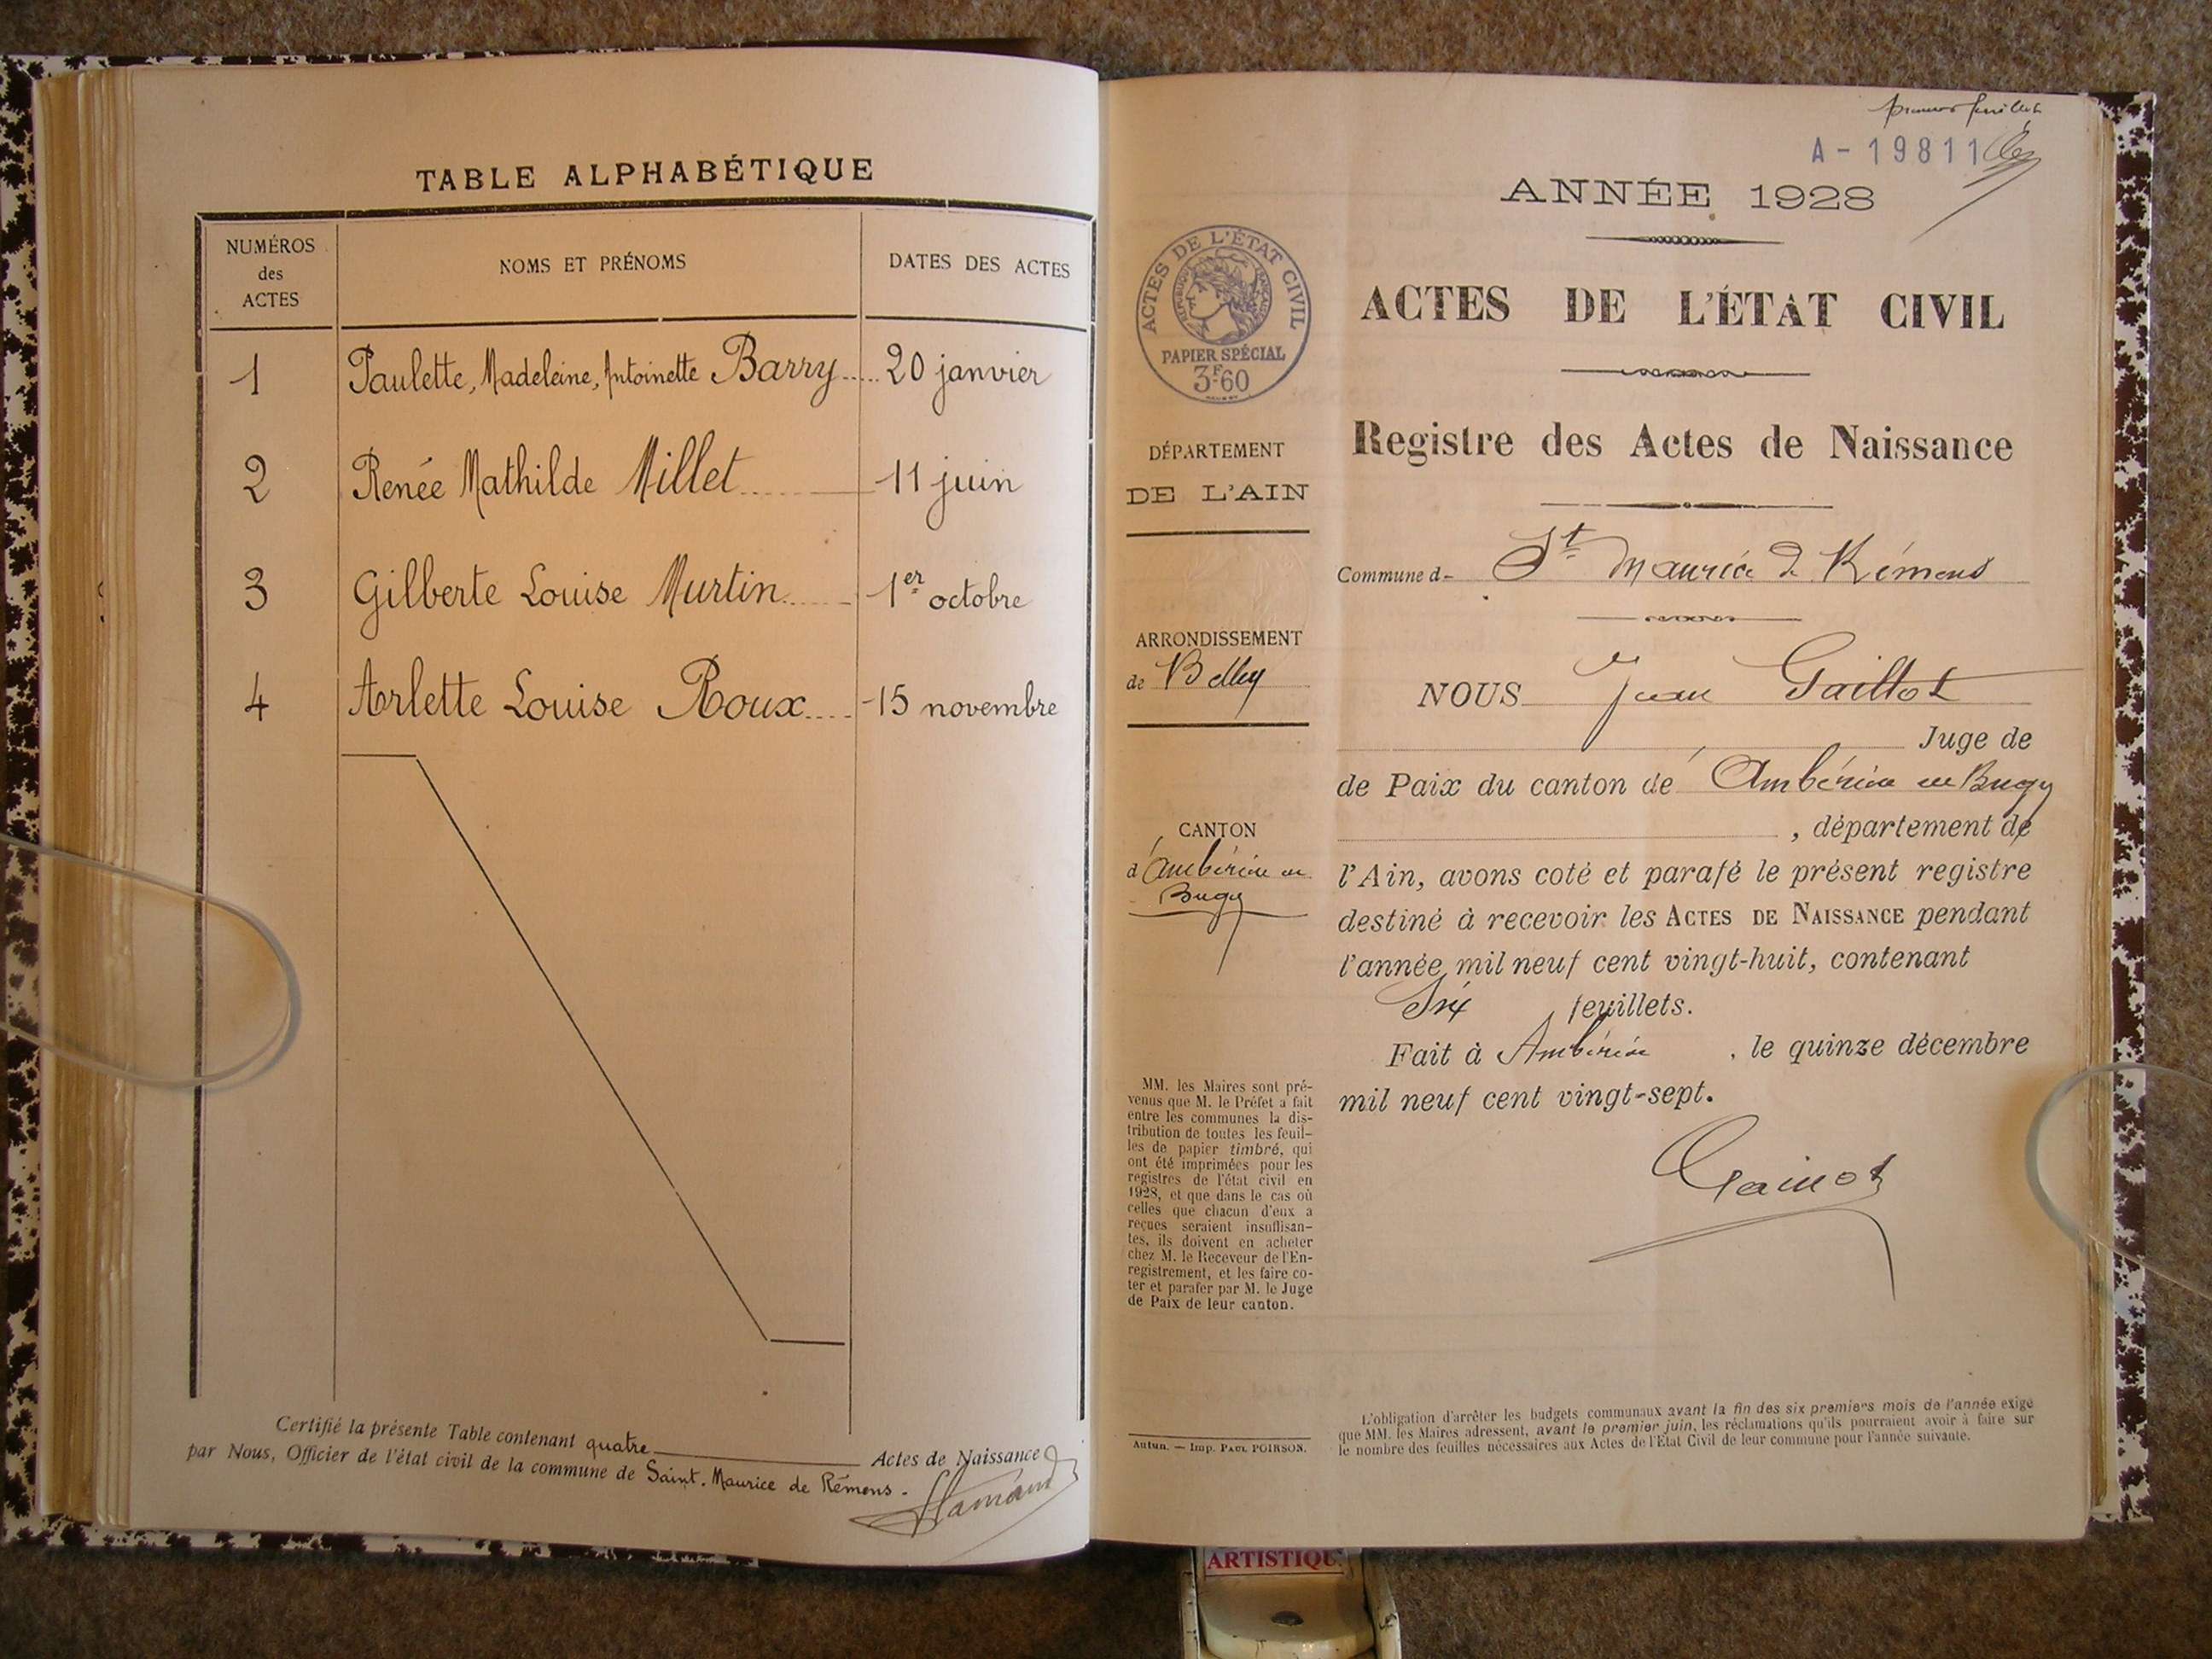 TABLE ALPHABÉTIQUE
NUMÉROS des ACTES
NOMS ET PRÉNOMS
DATES DES ACTES
1 Paulette, Madeleine, Antoinette Barry 20 janvier
2 Renée Mathilde Millet 11 juin
3 Gilberte Louise Murtin 1er octobre
4 Arlette Louise Roux 15 novembre
Certifié la présente Table contenant quatre Actes de Naissance
par Nous, Officier de l'état civil de la commune de Saint-Maurice de Rémens.
premier feuillet
A-19811
ANNÉE 1928
ACTES DE L'ÉTAT CIVIL
RÉPUBLIQUE FRANÇAISE
PAPIER SPÉCIAL
3F60
ACTES DE L'ÉTAT CIVIL
Registre des Actes de Naissance
DÉPARTEMENT
DE L'AIN
ARRONDISSEMENT
de Belley
CANTON
d'Ambérieu en
Bugey
MM. les Maires sont pré-
venus que M. le Préfet a fait
entre les communes la dis-
tribution de toutes les feuil-
les de papier timbré, qui
ont été imprimées pour les
registres de l'état civil en
1928, et que dans le cas où
celles que chacun d'eux a
reçues seraient insuffisan-
tes, ils doivent en acheter
chez M. le Receveur de l'En-
registrement, et les faire co-
ter et parafer par M. le Juge
de Paix de leur canton.
Autun. — Imp. PAUL POIRSON.
Commune d- St Maurice de Rémens
NOUS Jean
Juge de
de Paix du canton de Ambérieu en Bugey
, département de
l'Ain, avons coté et parafé le présent registre
destiné à recevoir les ACTES DE NAISSANCE pendant
l'année mil neuf cent vingt-huit, contenant
Six feuillets.
Fait à Ambérieu, le quinze décembre
mil neuf cent vingt-sept.
L'obligation d'arrêter les budgets communaux avant la fin des six premiers mois de l'année exige
que MM. les Maires adressent, avant le premier juin, les réclamations qu'ils pourraient avoir à faire sur
le nombre des feuilles nécessaires aux Actes de l'État Civil de leur commune pour l'année suivante.
ARTISTIQU